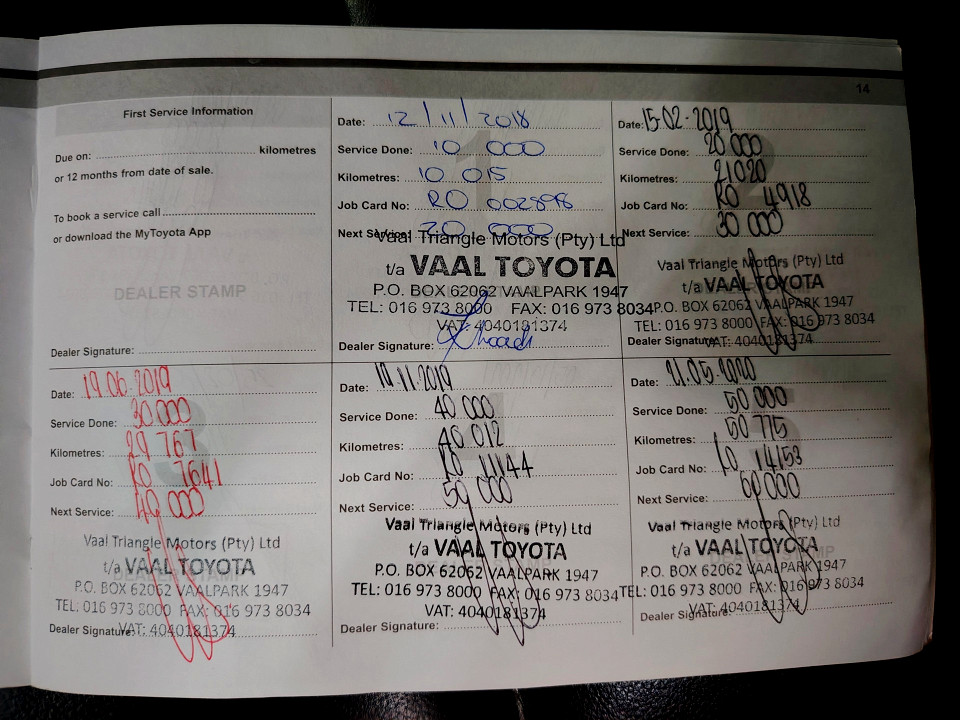 14
First Service Information
Due on: kilometres
or 12 months from date of sale.
To book a service call
or download the MyToyota App
DEALER STAMP
Dealer Signature:
Date: 12/11/2018
Service Done: 10 000
Kilometres: 10 015
Job Card No: RO 002898
Next Service: 20 000
Vaal Triangle Motors (Pty) Ltd
t/a VAAL TOYOTA
P.O. BOX 62062 VAALPARK 1947
TEL: 016 973 8000 FAX: 016 973 8034
VAT: 4040181374
Dealer Signature:
Date: 15-02-2019
Service Done: 20 000
Kilometres: 21020
Job Card No: RO 4918
Next Service: 30 000
Vaal Triangle Motors (Pty) Ltd
t/a VAAL TOYOTA
P.O. BOX 62062 VAALPARK 1947
TEL: 016 973 8000 FAX: 016 973 8034
Dealer Signature: VAT: 4040181374
Date: 19.06.2019
Service Done: 30 000
Kilometres: 29 767
Job Card No: RO 7641
Next Service: 40 000
Vaal Triangle Motors (Pty) Ltd
t/a VAAL TOYOTA
P.O. BOX 62062 VAALPARK 1947
TEL: 016 973 8000 FAX: 016 973 8034
Dealer Signature: VAT: 4040181374
Date: 19.11.2019
Service Done: 40 000
Kilometres: 40 012
Job Card No: RO 11144
Next Service: 50 000
Vaal Triangle Motors (Pty) Ltd
t/a VAAL TOYOTA
P.O. BOX 62062 VAALPARK 1947
TEL: 016 973 8000 FAX: 016 973 8034
VAT: 4040181374
Dealer Signature:
Date: 21.05.2020
Service Done: 50 000
Kilometres: 50 775
Job Card No: RO 14153
Next Service: 60 000
Vaal Triangle Motors (Pty) Ltd
t/a VAAL TOYOTA
P.O. BOX 62062 VAALPARK 1947
TEL: 016 973 8000 FAX: 016 973 8034
VAT: 4040181374
Dealer Signature: